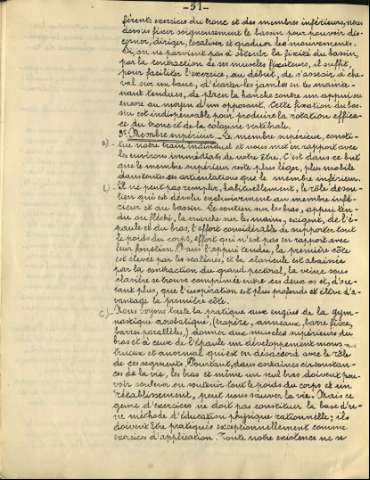 -51-
férents exercices du tronc et des membres inférieurs, nous
devons fixer soigneusement le bassin pour pouvoir dé-
composer, diriger, localiser et graduer les mouvements.
Si, on ne parvient pas à obtenir la fixité du bassin,
par la contraction de ses muscles fixateurs, il suffit,
pour faciliter l'exercice, au début, de s'asseoir à che-
val sur un banc, d'écarter les jambes en les mainte-
nant tendues, de placer la hanche contre un appui ou
encore au moyen d'un opposant. Cette fixation du bas-
sin est indispensable pour produire la rotation effica-
ce du tronc et de la colonne vertébrale.
3º Membre supérieur - Le membre supérieur, consti-
a) - tue notre train manuel et nous met en rapport avec
les environs immédiats de notre être. C'est dans ce but
que le membre supérieur reste plus léger, plus mobile
dans toutes ses articulations que le membre inférieur.
b) - Il ne peut pas remplir, habituellement, le rôle de sou-
tien qui est dévolu exclusivement au membre infé-
rieur et au bassin. Le soutien sur les bras, appui ten-
du ou fléchi, la marche sur les mains, exigent, de l'é-
paule et du bras, l'effort considérable de supporter tout
le poids du corps, effort qui n'est pas en rapport avec
leur fonction. Dans l'appui tendu, la première côte
est élevée par les scalènes, et la clavicule est abaissée
par la contraction du grand pectoral, la veine sous-
clavière se trouve comprimée entre ces deux os et, d'au-
tant plus, que l'inspiration est plus profonde et élève d'a-
vantage la première côte.
c) - Nous voyons toute la pratique aux engins de la gym-
nastique acrobatique, (trapèze, anneaux, barre fixe,
barres parallèles,) donner aux muscles supérieurs du
bras et à ceux de l'épaule un développement mons-
trueux et anormal qui est en désaccord avec le rôle
de ces segments. Pourtant, dans certaines circonstan-
ces de la vie, les bras et même un seul bras doivent pou-
voir soulever ou soutenir tout le poids du corps et un
rétablissement, peut nous sauver la vie. Mais ce
genre d'exercices ne doit pas constituer la base d'u-
ne méthode d'éducation physique rationnelle; ils
doivent être pratiqués exceptionnellement comme
exercices d'application. Toute notre existence ne se